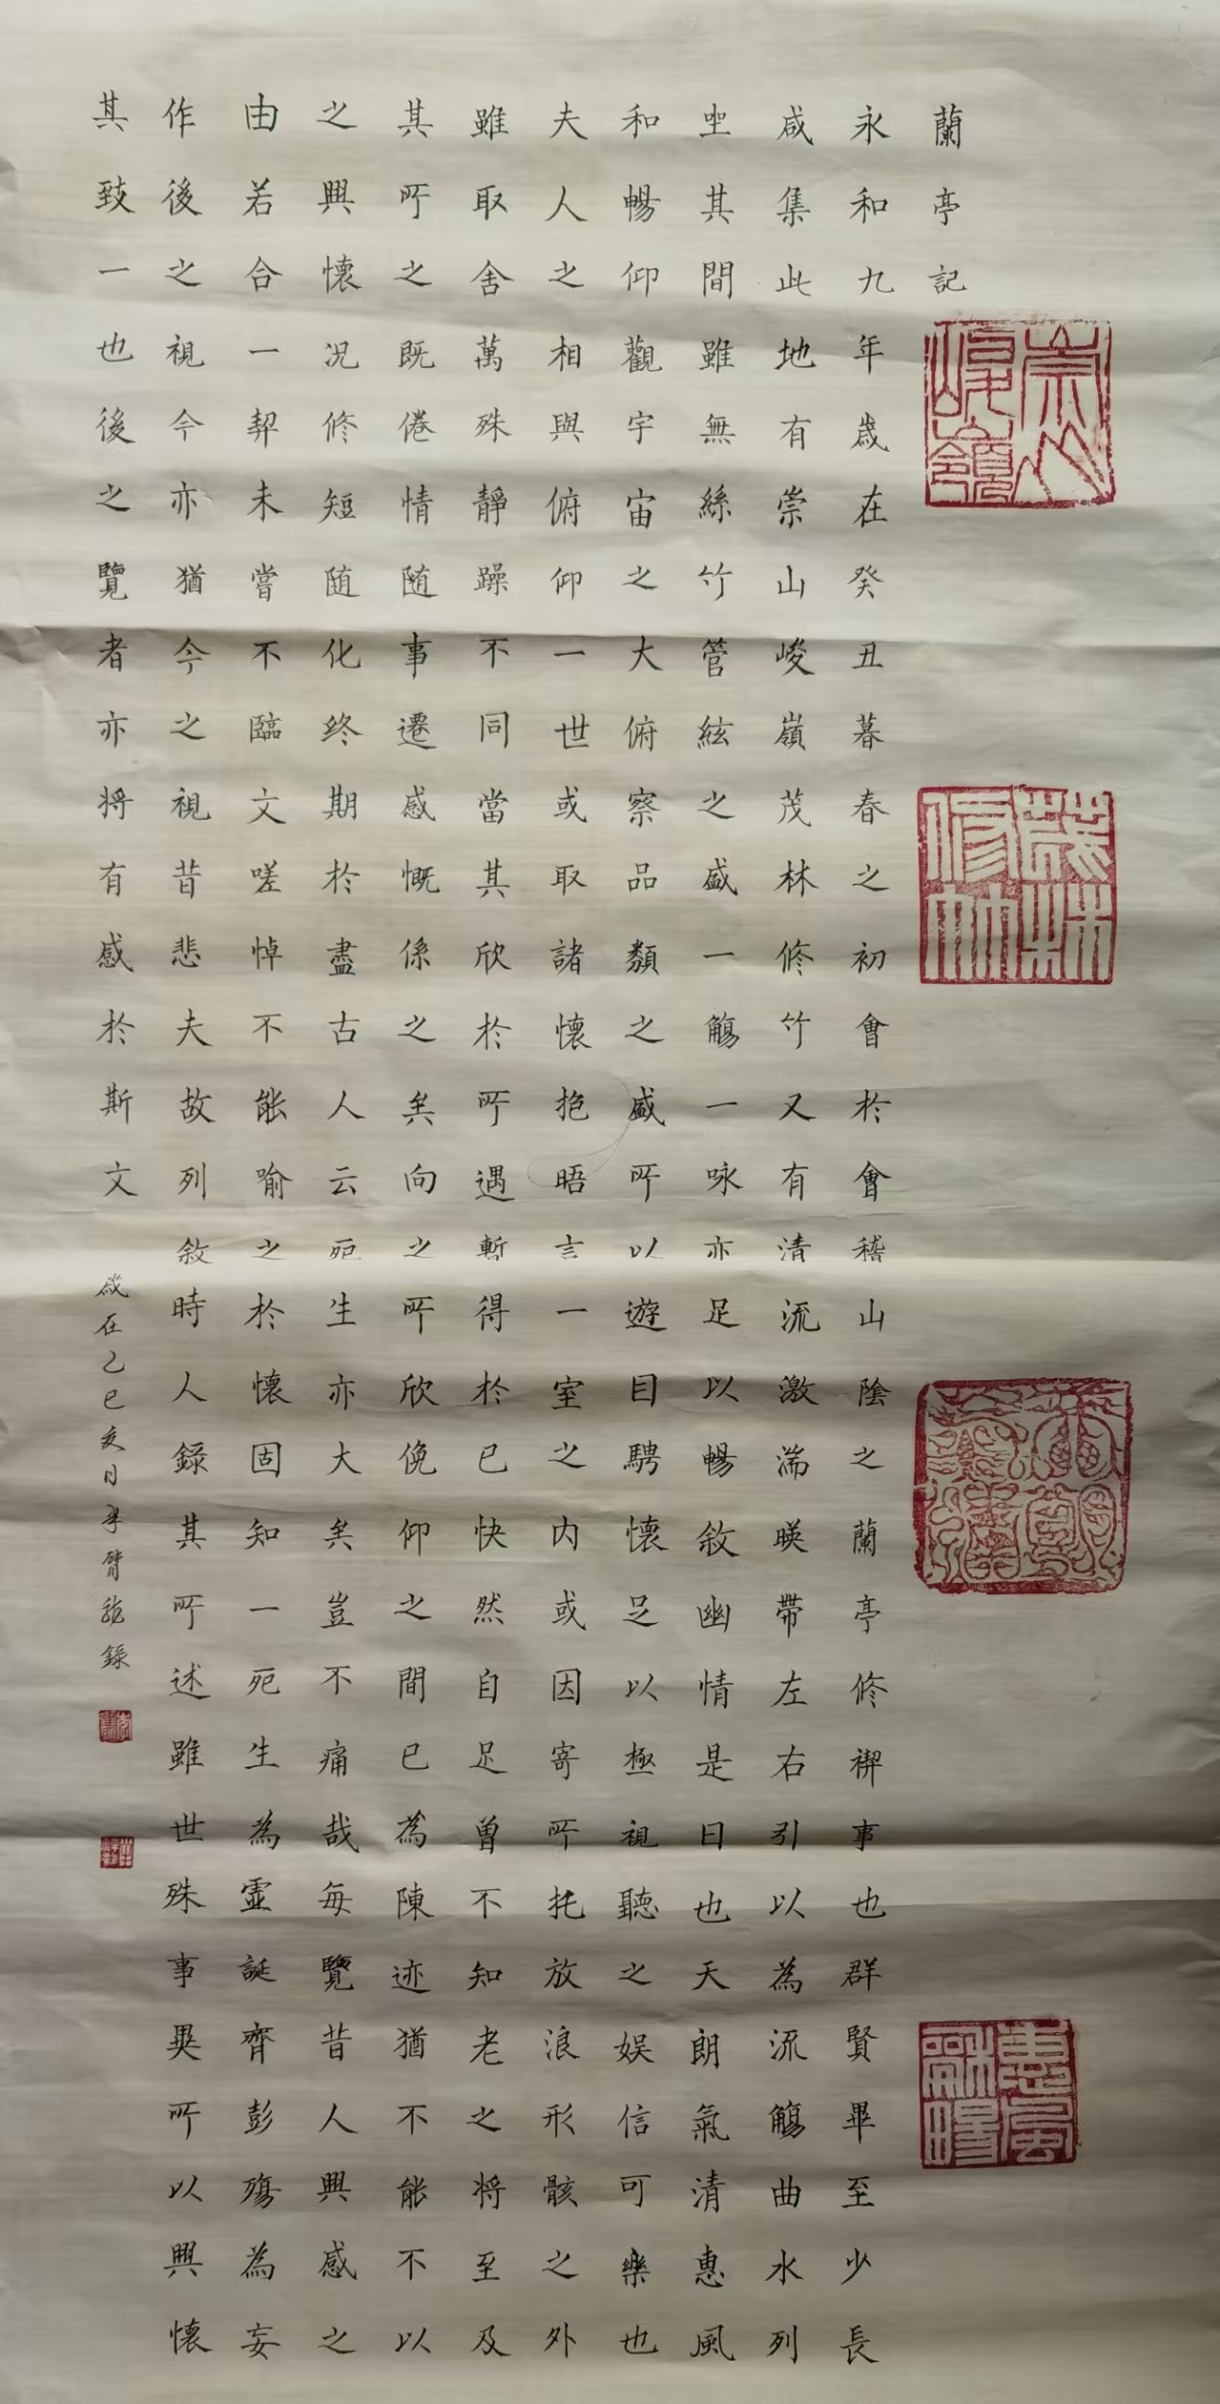 蘭亭記
永和九年歲在癸丑暮春之初會於會稽山陰之蘭亭修禊事也群賢畢至少長
咸集此地有崇山峻嶺茂林修竹又有清流激湍暎帶左右引以為流觴曲水列
坐其間雖無絲竹管絃之盛一觴一咏亦足以暢敘幽情是日也天朗氣清惠風
和暢仰觀宇宙之大俯察品類之盛所以遊目騁懷足以極視聽之娛信可樂也
夫人之相與俯仰一世或取諸懷抱晤言一室之内或因寄所托放浪形骸之外
雖取舍萬殊靜躁不同當其欣於所遇暫得於己快然自足曾不知老之將至及
其所之既倦情随事遷感慨係之矣向之所欣俛仰之間已為陳迹猶不能不以
之興懷况修短随化終期於盡古人云死生亦大矣豈不痛哉每覽昔人興感之
由若合一契未嘗不臨文嗟悼不能喻之於懷固知一死生為虛誕齊彭殤為妄
作後之視今亦猶今之視昔悲夫故列敘時人錄其所述雖世殊事異所以興懷
其致一也後之覽者亦將有感於斯文
歲在乙巳亥月李臂龍錄
崇山峻嶺
茂林修竹
惠風和暢